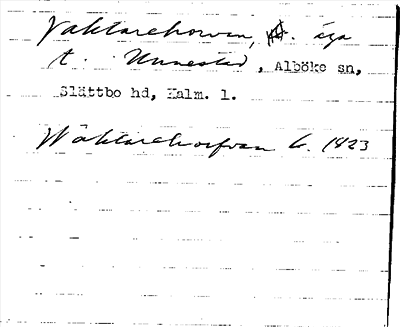 Vaktarehorvan, A. äga
t. Unnestad, Alböke sn,
Slättbo hd, Kalm. l.
Wäktarehorfvan L. 1823